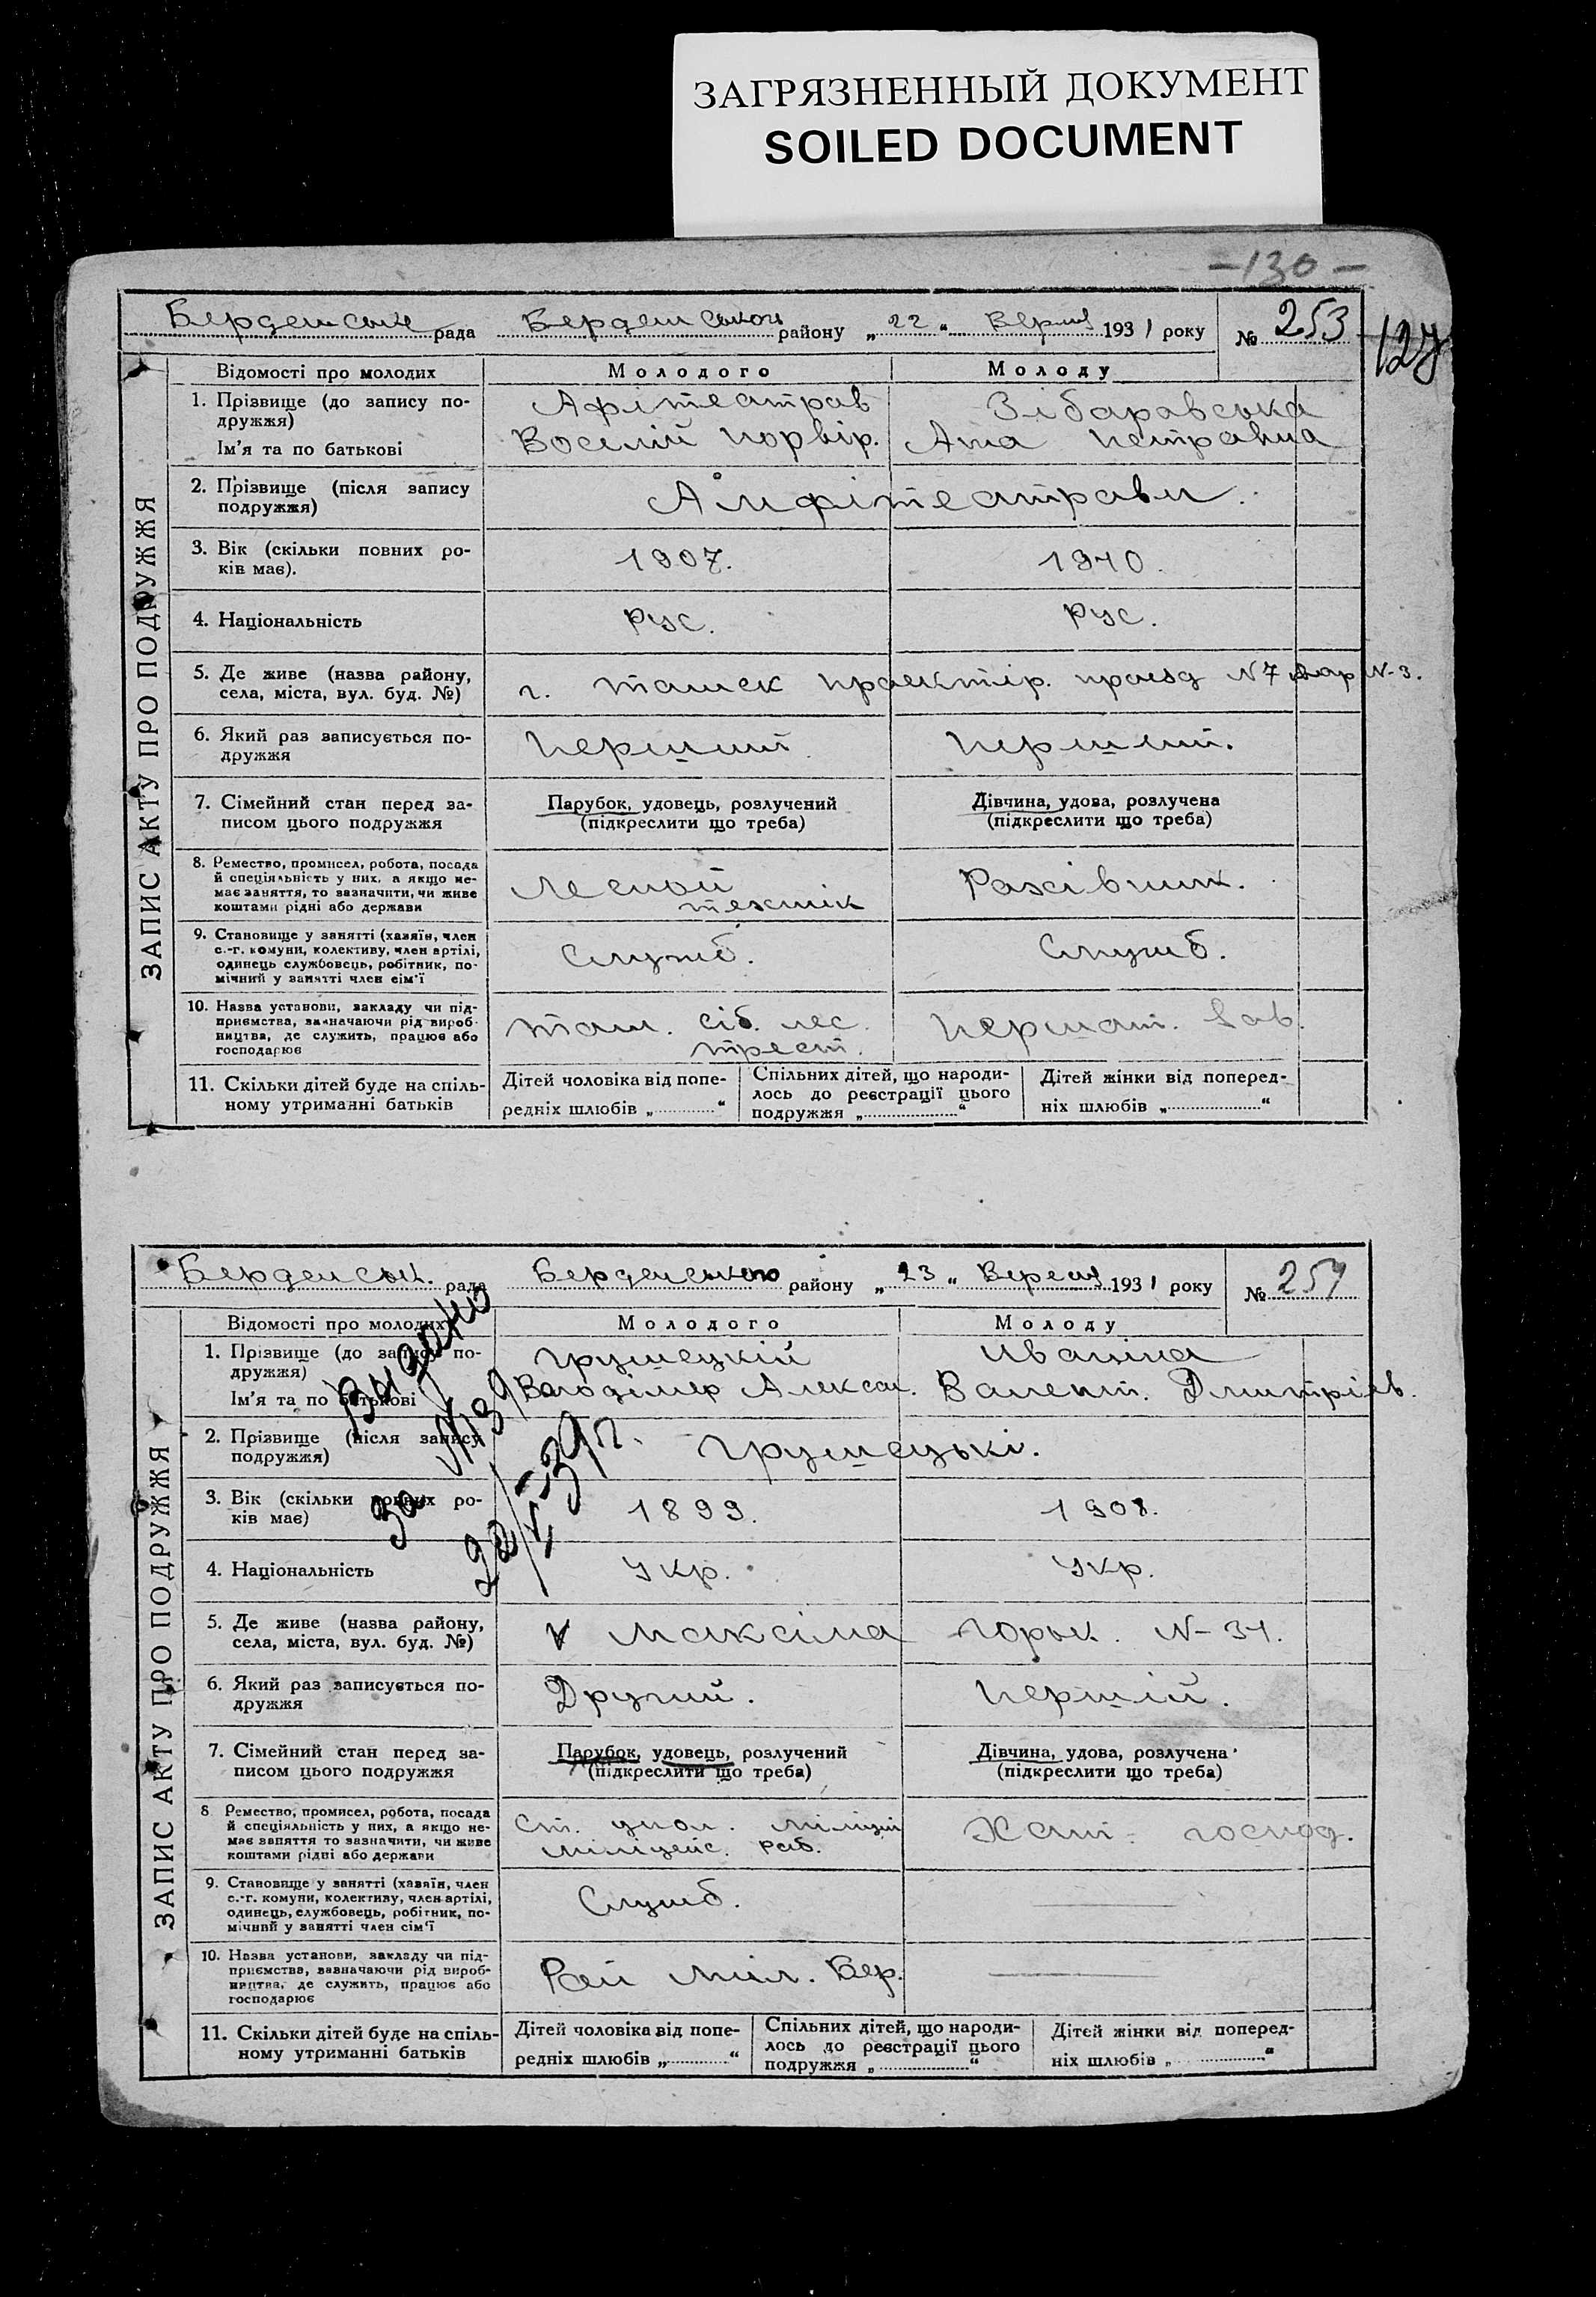 ЗАГРЯЗНЕННЫЙ ДОКУМЕНТ
SOILED DOCUMENT
-130-
127
ЗАПИС АКТУ ПРО ПОДРУЖЖЯ
рада Бердянського району „22“ 1931 року № 253
Відомості про молодих Молодого Молоду
1. Прізвище (до запису по- Афітеатров Зібаровська
дружжя)
Ім'я та по батькові Порвір. Петравна
2. Прізвище (після запису Амфітеатрови.
подружжя)
3. Вік (скільки повних ро- 1907. 1910.
ків має).
4. Національність Рус. Рус.
5. Де живе (назва району, г. проезд N 7 N-3.
села, міста, вул. буд. №)
6. Який раз записується по- Перший Перший.
дружжя
7. Сімейний стан перед за- Парубок, удовець, розлучений Дівчина, удова, розлучена
писом цього подружжя (підкреслити що треба) (підкреслити що треба)
8. Ремество, промисел, робота, посада Лесной
й спеціяльність у них, а якщо не- технік
має заняття, то зазначити, чи живе
коштами рідні або держави
9. Становище у занятті (хазяїн, член Служб. Служб.
с.-г. комуни, колективу, член артілі,
одинець службовець, робітник, по-
мічний у занятті член сім'ї
10. Назва установи, закладу чи під- сіб. лес.
приємства, зазначаючи рід вироб- трест.
ництва, де служить, працює або
господарює
11. Скільки дітей буде на спіль- Дітей чоловіка від попе- Спільних дітей, що народи- Дітей жінки від поперед-
ному утриманні батьків редніх шлюбів „ “ лось до реєстрації цього ніх шлюбів „ “
подружжя „ “
ЗАПИС АКТУ ПРО ПОДРУЖЖЯ
Берденськ. рада Берденського району „23“ Вересня 1931 року № 254
Відомості про молодих Молодого Молоду
1. Прізвище (до запису по- Грушецкій Иваніна
дружжя)
Ім'я та по батькові Володімер Алексан. Валент. Дмитріев.
2. Прізвище (після запису Грушецькі.
подружжя)
3. Вік (скільки повних ро- 1899. 1908.
ків має)
4. Національність Укр. Укр.
5. Де живе (назва району, Максіма Горьк. N-31.
села, міста, вул. буд. №)
6. Який раз записується по- Другий. Першій.
дружжя
7. Сімейний стан перед за- Парубок, удовець, розлучений Дівчина, удова, розлучена
писом цього подружжя (підкреслити що треба) (підкреслити що треба)
8 Ремество, промисел, робота, посада Ст. упол. міліціі Хат. господ.
й спеціяльність у них, а якщо не- міліцейс. раб.
має заняття то зазначити, чи живе
коштами рідні або держави
9. Становище у занятті (хазяїн, член Служб.
с.-г. комуни, колективу, член артілі,
одинець, службовець, робітник, по-
мічний у занятті член сім'ї
10. Назва установи, закладу чи під- Рай міл. Бер.
приємства, зазначаючи рід вироб-
ництва, де служить, працює або
господарює
11. Скільки дітей буде на спіль- Дітей чоловіка від попе- Спільних дітей, що народи- Дітей жінки від поперед-
ному утриманні батьків редніх шлюбів „ “ лось до реєстрації цього ніх шлюбів „ “
подружжя „ “
Видано
за